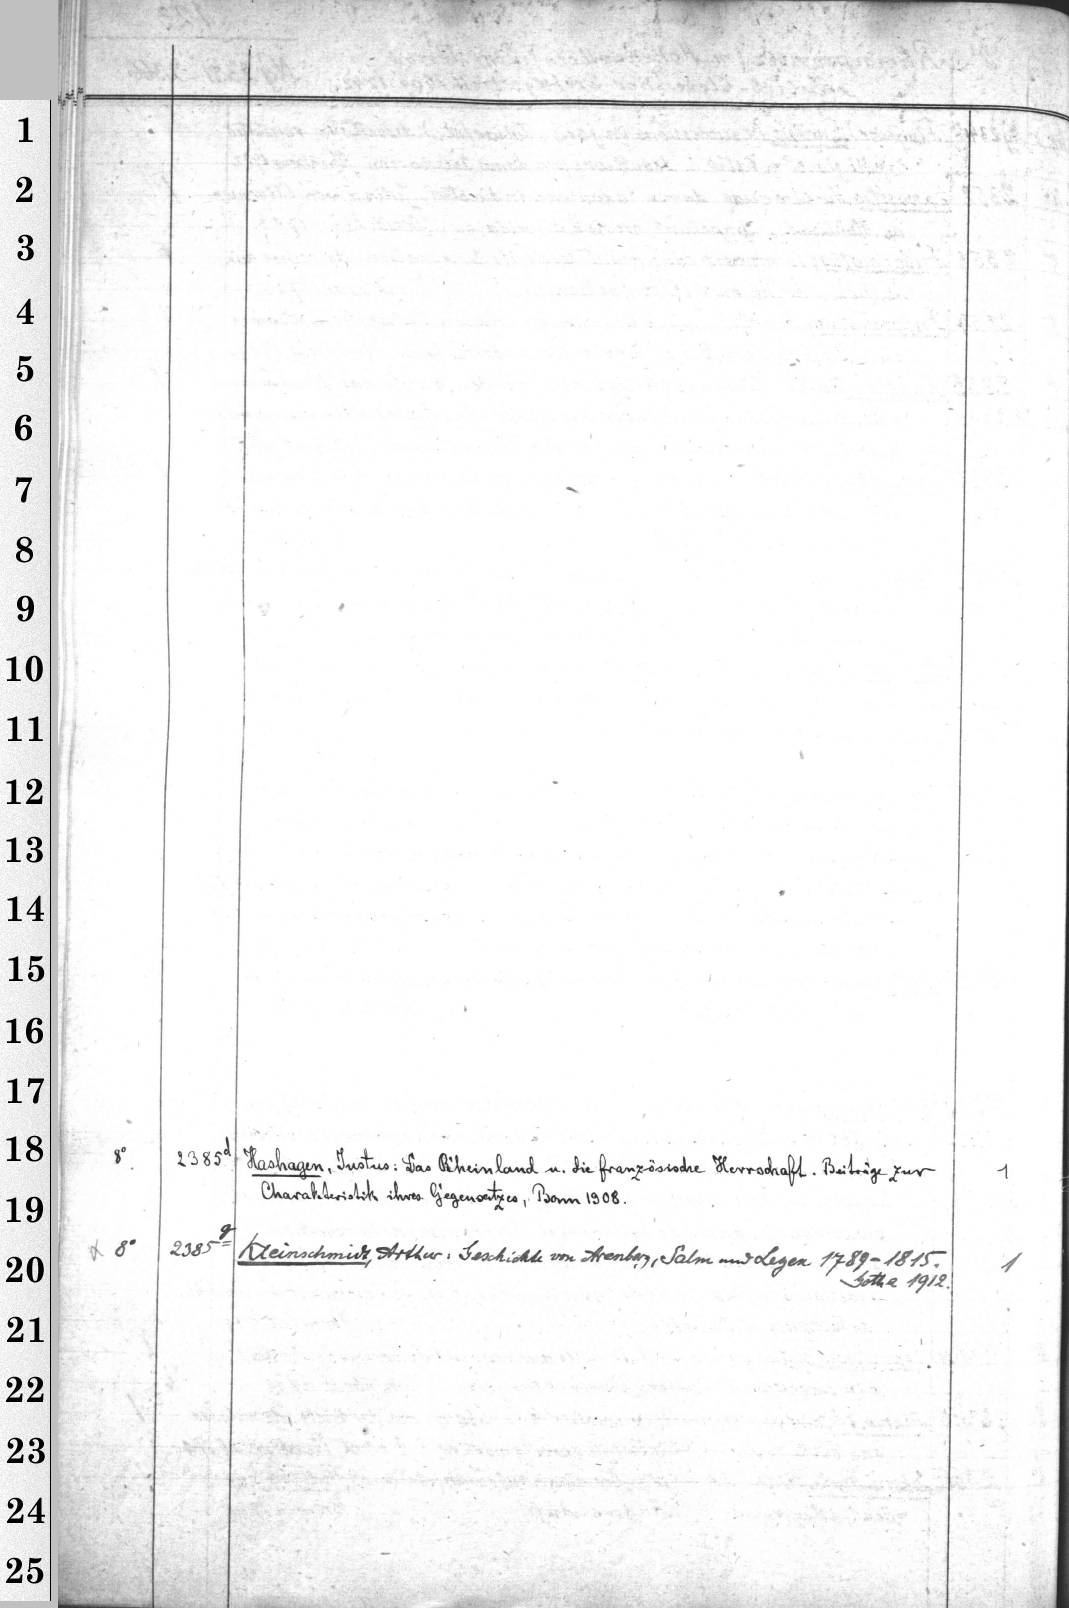 1
2
3
4
5
6
7
8
9
10
11
12
13
14
15
16
17
18
8° 2385d Hashagen, Justus: Das Rheinland u. die französische Herrschaft. Beiträge zur 1
Charakteristik ihres Gegensatzes, Bonn 1908.
19
x 8° 2385g Kleinschmidt, Arthur: Geschichte von Arenberg, Salm und Leyen 1789-1815. 1
20
Gotha 1912.
21
22
23
24
25